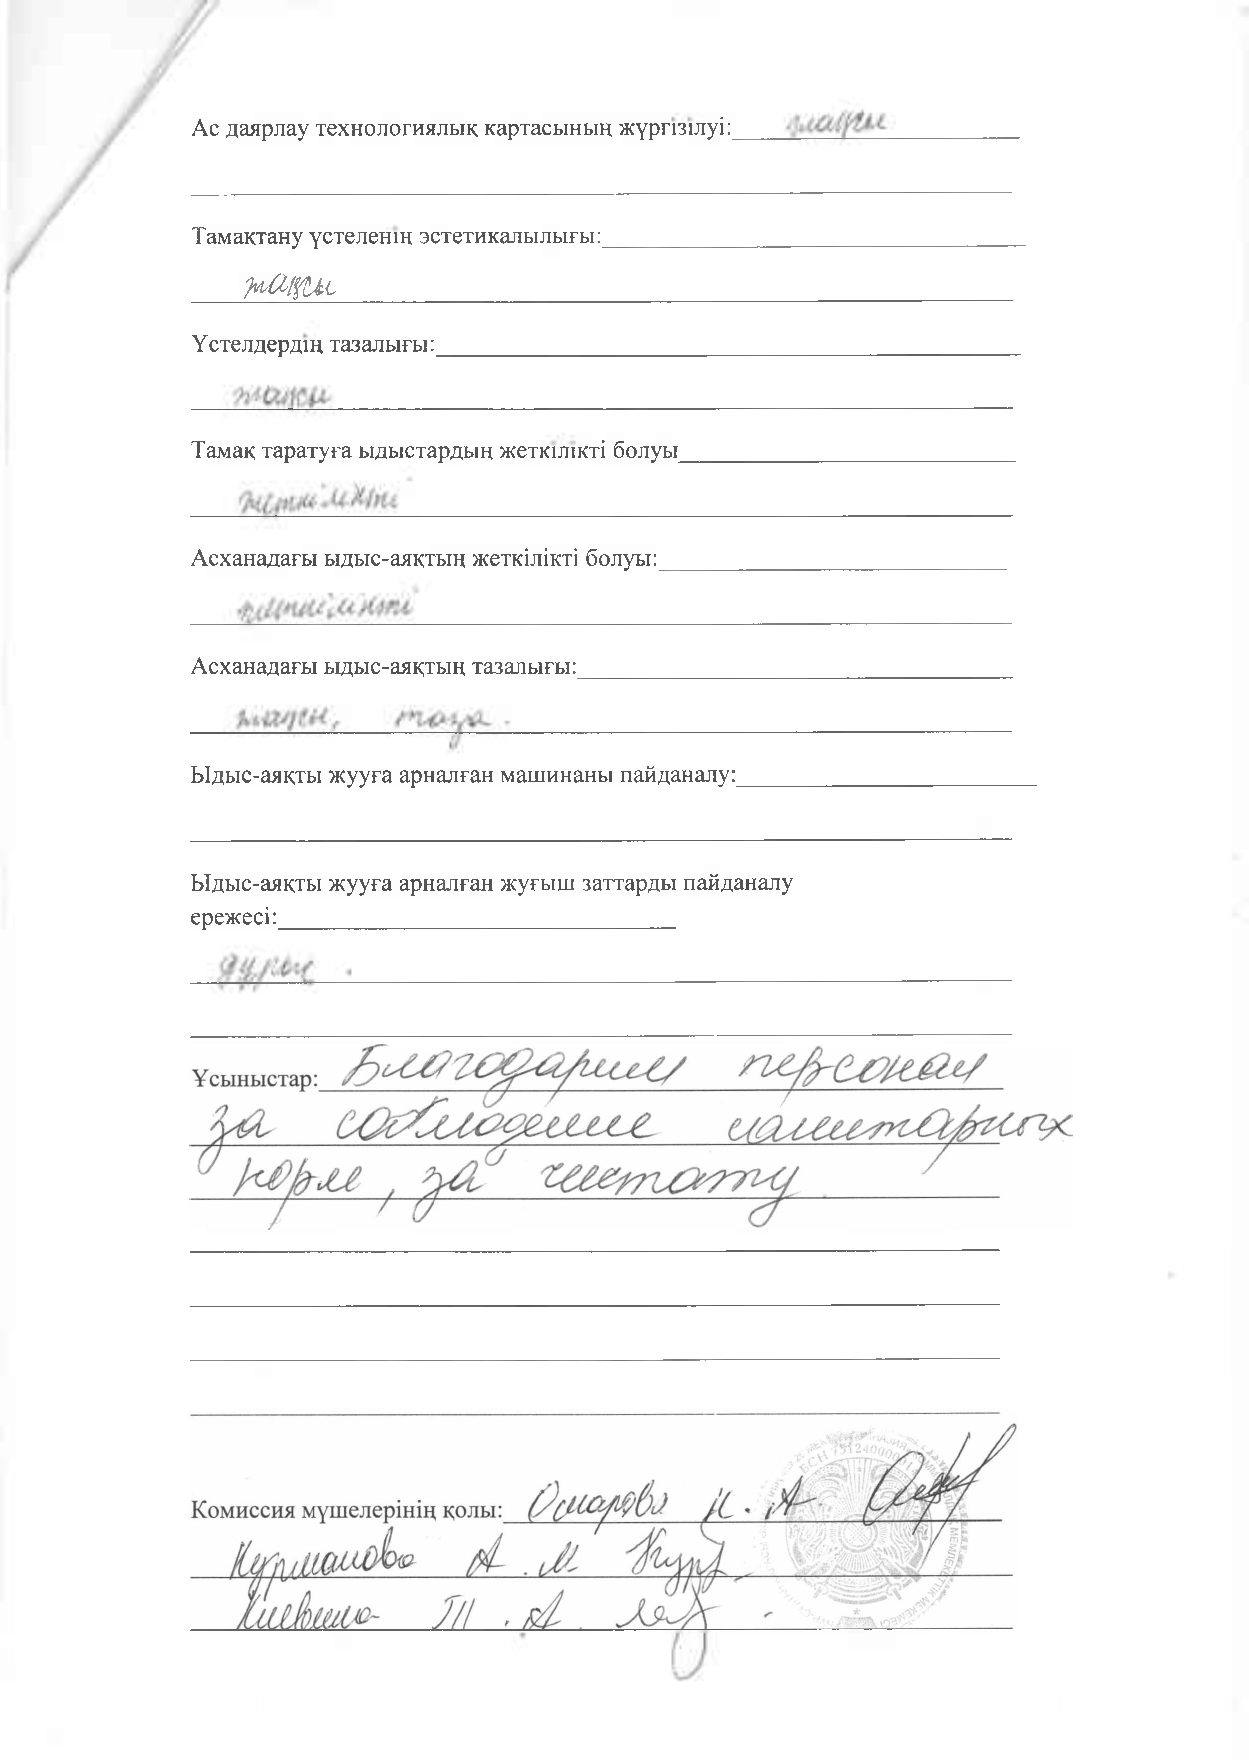 Ас даярлау технологиялық картасының жүргізілуі: жақсы
Тамақтану үстеленің эстетикалылығы:
жақсы
Үстелдердің тазалығы:
жақсы
Тамақ таратуға ыдыстардың жеткілікті болуы
жеткілікті
Асханадағы ыдыс-аяқтың жеткілікті болуы:
жеткілікті
Асханадағы ыдыс-аяқтың тазалығы:
жақсы, таза.
Ыдыс-аяқты жууға арналған машинаны пайдалану:
Ыдыс-аяқты жууға арналған жуғыш заттарды пайдалану
ережесі:
дұрыс.
Ұсыныстар: Благодарим персонал
за соблюдение санитарных
норм, за чистоту.
Комиссия мүшелерінің қолы: Омарова Н.А.
Курманова А.М.
Т.А.